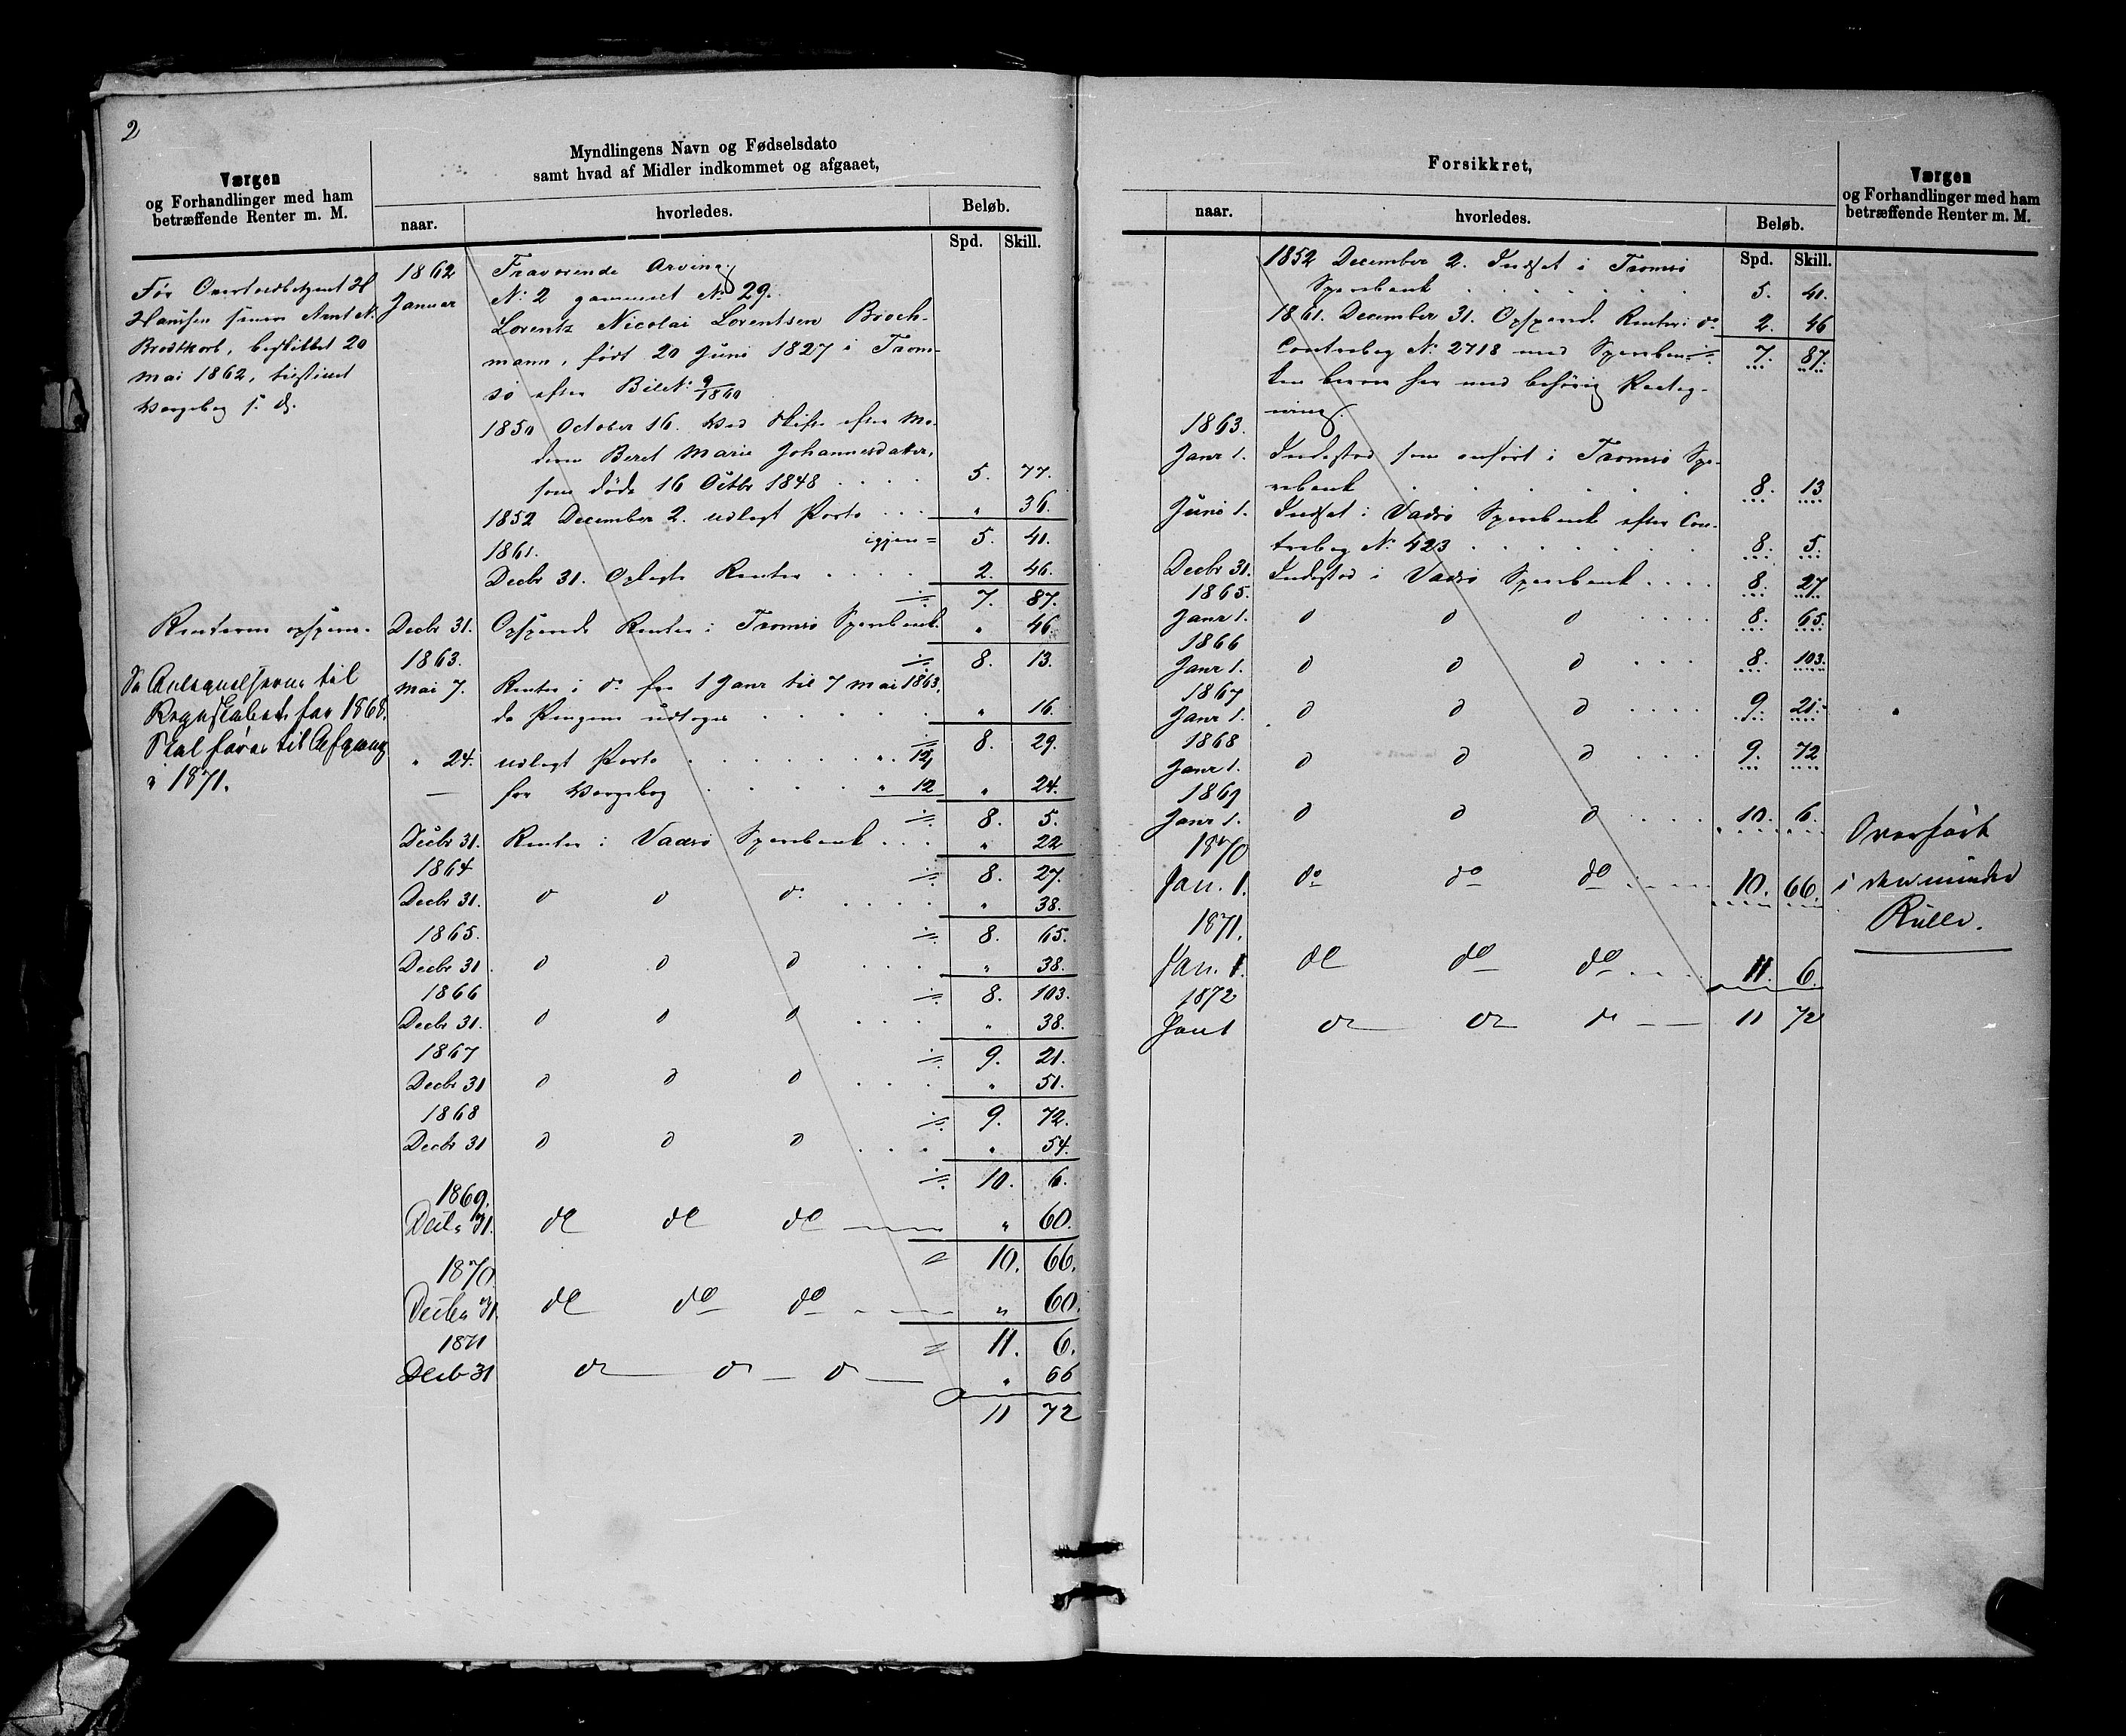 2
Værgen
og Forhandlinger med ham
betræffende Renter m. M.
Myndlingens Navn og Fødselsdato
samt hvad af Midler indkommet og afgaaet,
naar.
hvorledes.
Beløb.
Spd. Skill.
Før
Hansen
Brodtkorb, beskikket 20
Mai 1862, tilstillet
Værgebog s. d.
Renterne opspares.
Se Antegnelserne til
Regnskabet for 1868.
Skal føres til Afgang
i 1871.
1862 Fraværende Arving.
Januar N: 2 gammelt N: 29.
Lorentz Nicolai Lorentsen Broch-
mann, født 20 Juni 1827 i Trom-
sö efter Bil. N: 9/1860
1850 October 16. Ved Skifte efter Mo-
deren Beret Marie Johannesdatter,
som døde 16 Octbr 1848 . . . . 5. 77.
1852 December 2. udlagt Porto . . . " 36.
igjen = 5. 41.
1861.
Decbr 31. Oplagte Renter . . . . 2. 46.
÷ 7. 87.
Decbr 31. Opsparede Renter i Tromsö Sparebank " 46.
÷ 8. 13.
1863.
Mai 7. Renter i do fra 1 Janr til 7 Mai 1863,
da Pengene udtoges . . . . . " 16.
÷ 8. 29.
" 24. udlagt Porto . . . . . . . " 12
— for Værgebog . . . . . " 12 " 24.
÷ 8. 5.
Decbr 31. Renter i Vadsö Sparebank . . . " 22
1864 ÷ 8. 27.
Decbr 31. do do do . . . . " 38.
1865. ÷ 8. 65.
Decbr 31. do do do . . . " 38.
1866 ÷ 8. 103.
Decbr 31. do do do . . . " 38.
1867 ÷ 9. 21.
Decbr 31 do do do . . . " 51.
1868 ÷ 9. 72.
Decbr 31 do do do . . . " 54.
÷ 10. 6.
1869.
Decbr 31. do do do " 60.
10. 66.
1870.
Decbr 31. do do do " 60.
1871 11. 6.
Decb 31 do do do " 66
11 72
Forsikkret,
naar.
hvorledes.
Beløb.
Spd. Skill.
Værgen
og Forhandlinger med ham
betræffende Renter m. M.
1852 December 2. Indsat i Tromsö
Sparebank . . . . . . . 5. 41.
1861. December 31. Opspard. Renter i do 2. 46
Contrabog N: 2718 med Spareban- ÷ 7. 87.
ken beroer her med behörig Paateg-
ning.
1863.
Janr 1. Indestod som anført i Tromsö Spa-
rebank . . . . . . 8. 13
Juni 1. Indsat i Vadsö Sparebank efter Con-
trabog N: 423 . . . . . . 8. 5.
Decbr 31. Indestod i Vadsö Sparebank . . . . 8. 27
1865.
Janr 1. do do do . . . . 8. 65.
1866
Janr 1. do do do . . . 8. 103.
1867
Janr 1. do do do . . . . 9. 21.
1868
Janr 1. do do do . . . . 9. 72
1869
Janr 1. do do do . . . . 10. 6.
1870
Jan. 1. do do do . . . . 10. 66.
1871.
Jan. 1. do do do . . . . 11. 6.
1872
Jan 1 do do do 11 72
Overført
i den mindre
Rulle.